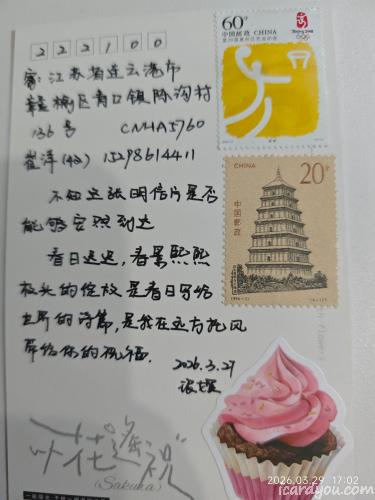 222100
寄:江苏省连云港市
赣榆区青口镇陈沟村
136号 CNHA5760
崔洋(收) 15298614411
不知这张明信片是否
能够安然到达
春日迟迟,春景熙熙
枝头的绽放是春日写给
世界的诗篇,是我在远方托风
寄给你的祝福.
2026.3.27
60分
中国邮政 CHINA
Beijing 2008
20分
CHINA
中国邮政
(Sakura)
2026.03.29 17:02
icardyou.com